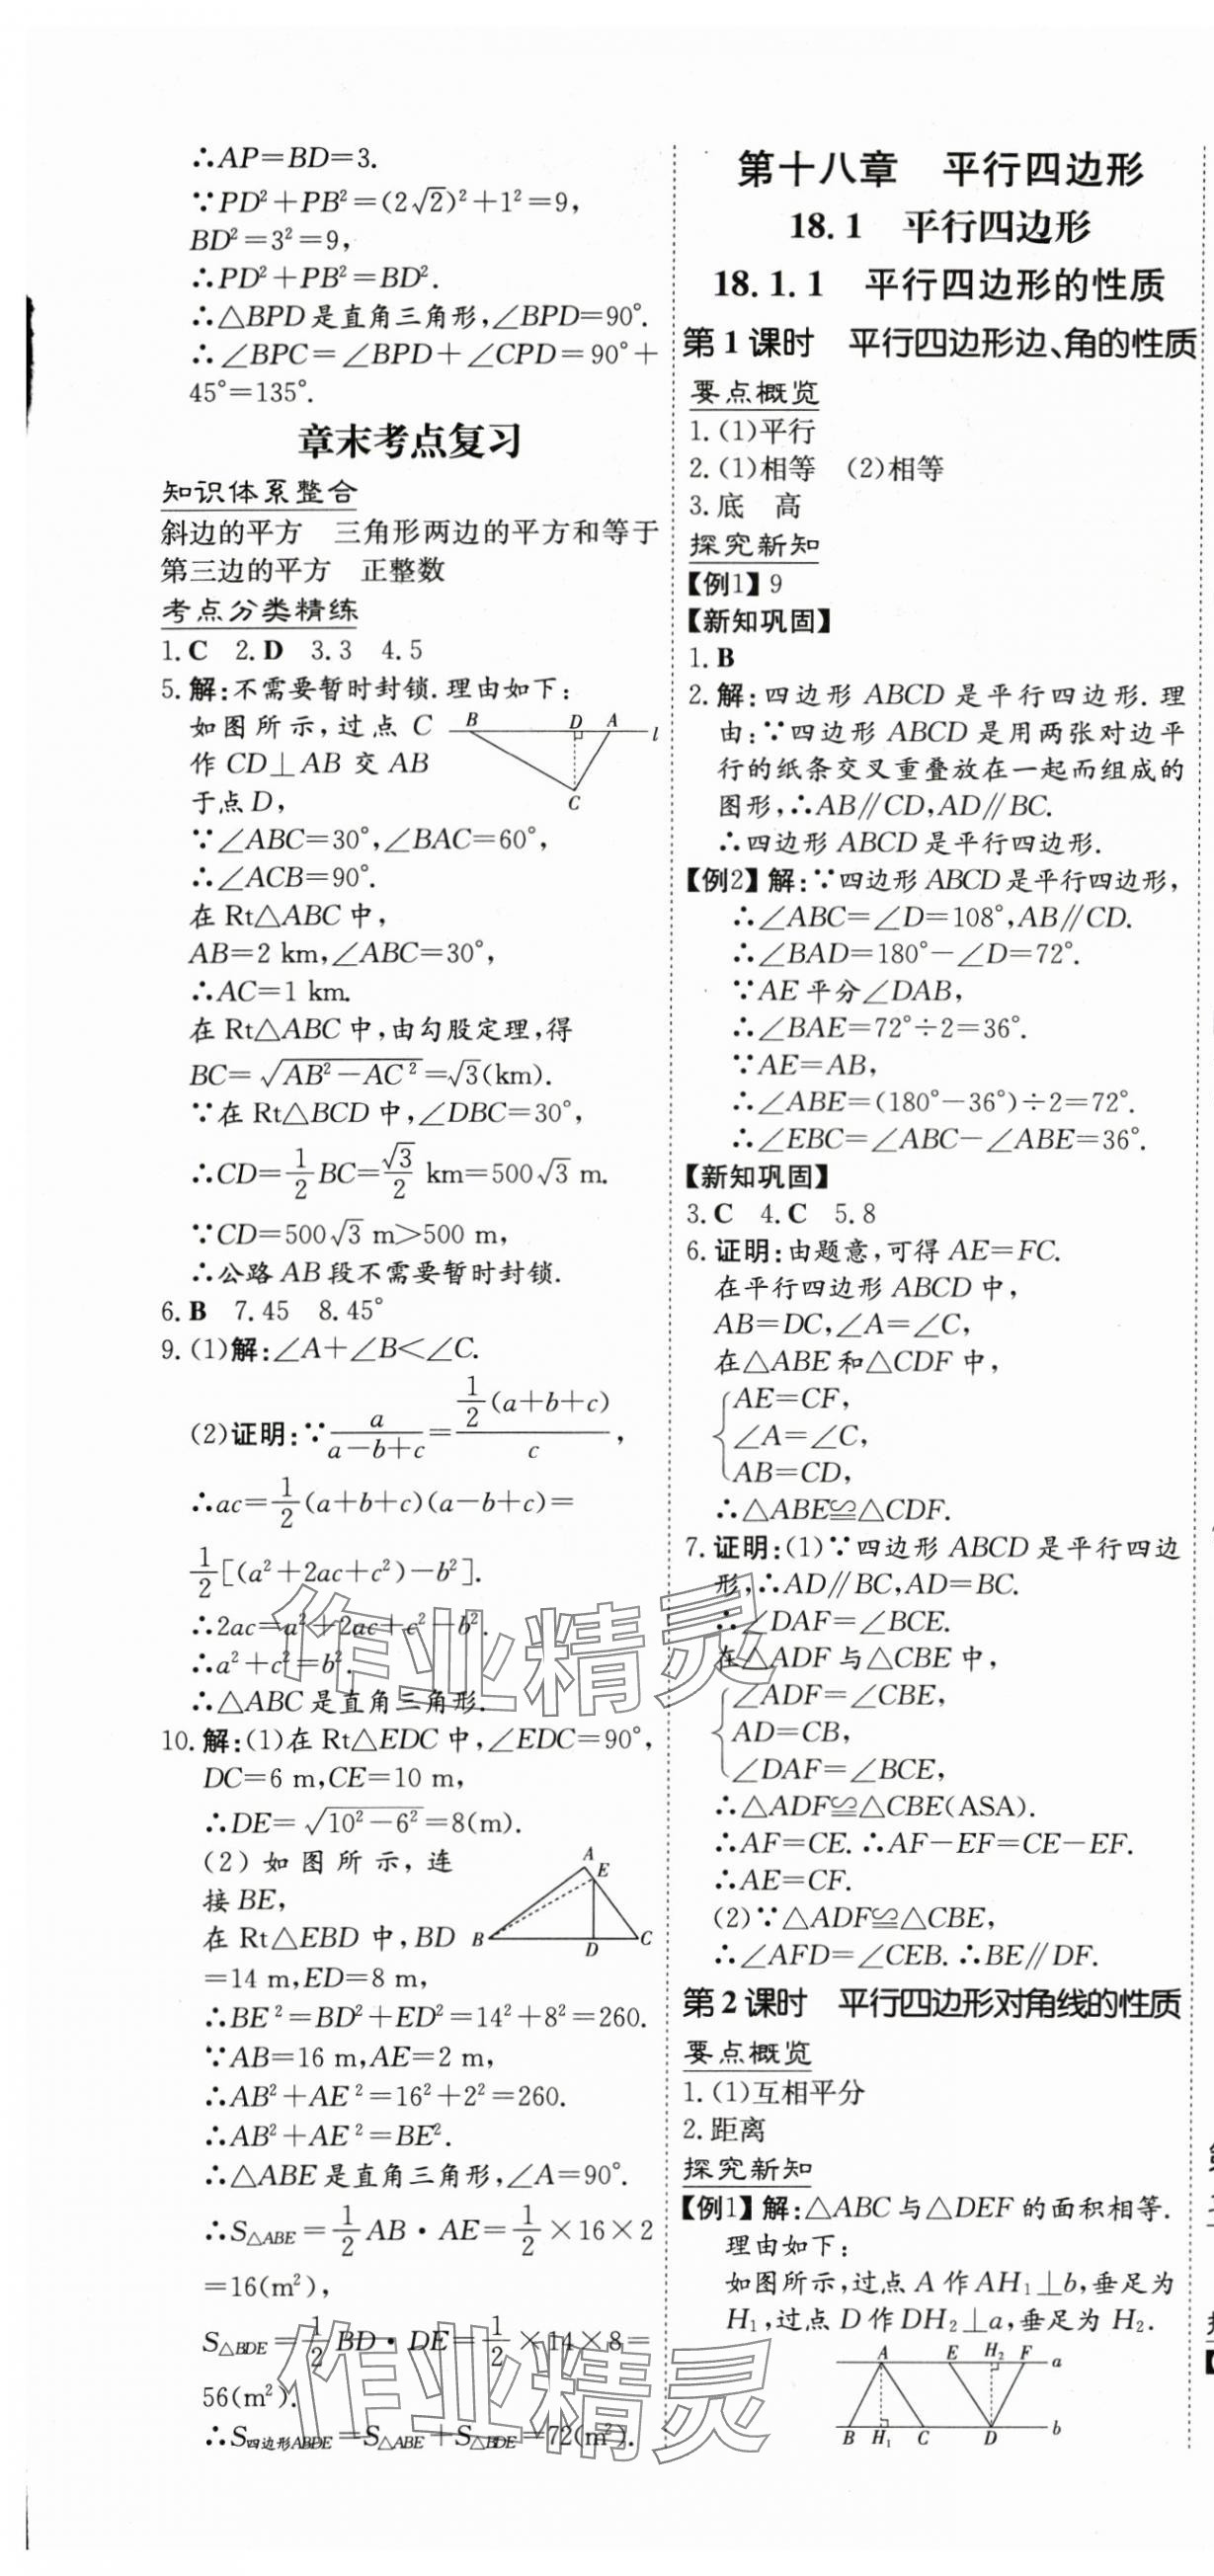 ∴AP=BD=3.
∵PD²+PB²=(2√2)²+1²=9,
BD²=3²=9,
∴PD²+PB²=BD².
∴△BPD是直角三角形,∠BPD=90°.
∴∠BPC=∠BPD+∠CPD=90°+
45°=135°.
章末考点复习
知识体系整合
斜边的平方　三角形两边的平方和等于
第三边的平方　正整数
考点分类精练
1.C　2.D　3.3　4.5
5.解:不需要暂时封锁.理由如下:
如图所示,过点C
作CD⊥AB交AB
于点D,
B D A l
C
∵∠ABC=30°,∠BAC=60°,
∴∠ACB=90°.
在Rt△ABC中,
AB=2 km,∠ABC=30°,
∴AC=1 km.
在Rt△ABC中,由勾股定理,得
BC=√(AB²-AC²)=√3(km).
∵在Rt△BCD中,∠DBC=30°,
∴CD=1/2 BC=√3/2 km=500√3 m.
∵CD=500√3 m>500 m,
∴公路AB段不需要暂时封锁.
6.B　7.45　8.45°
9.(1)解:∠A+∠B<∠C.
(2)证明:∵a/(a-b+c)=1/2(a+b+c)/c,
∴ac=1/2(a+b+c)(a-b+c)=
1/2[(a²+2ac+c²)-b²].
∴2ac=a²+2ac+c²-b².
∴a²+c²=b².
∴△ABC是直角三角形.
10.解:(1)在Rt△EDC中,∠EDC=90°,
DC=6 m,CE=10 m,
∴DE=√(10²-6²)=8(m).
(2)如图所示,连
接BE,
在Rt△EBD中,BD
A E
B D C
=14 m,ED=8 m,
∴BE²=BD²+ED²=14²+8²=260.
∵AB=16 m,AE=2 m,
∴AB²+AE²=16²+2²=260.
∴AB²+AE²=BE².
∴△ABE是直角三角形,∠A=90°.
∴S△ABE=1/2 AB·AE=1/2×16×2
=16(m²),
S△BDE=1/2 BD·DE=1/2×14×8=
56(m²).
∴S四边形ABDE=S△ABE+S△BDE=72(m²).
第十八章　平行四边形
18.1　平行四边形
18.1.1　平行四边形的性质
第1课时　平行四边形边、角的性质
要点概览
1.(1)平行
2.(1)相等　(2)相等
3.底　高
探究新知
【例1】9
【新知巩固】
1.B
2.解:四边形ABCD是平行四边形.理
由:∵四边形ABCD是用两张对边平
行的纸条交叉重叠放在一起而组成的
图形,∴AB∥CD,AD∥BC.
∴四边形ABCD是平行四边形.
【例2】解:∵四边形ABCD是平行四边形,
∴∠ABC=∠D=108°,AB∥CD.
∴∠BAD=180°-∠D=72°.
∵AE平分∠DAB,
∴∠BAE=72°÷2=36°.
∵AE=AB,
∴∠ABE=(180°-36°)÷2=72°.
∴∠EBC=∠ABC-∠ABE=36°.
【新知巩固】
3.C　4.C　5.8
6.证明:由题意,可得AE=FC.
在平行四边形ABCD中,
AB=DC,∠A=∠C,
在△ABE和△CDF中,
AE=CF,
∠A=∠C,
AB=CD,
∴△ABE≌△CDF.
7.证明:(1)∵四边形ABCD是平行四边
形,∴AD∥BC,AD=BC.
∴∠DAF=∠BCE.
在△ADF与△CBE中,
∠ADF=∠CBE,
AD=CB,
∠DAF=∠BCE,
∴△ADF≌△CBE(ASA).
∴AF=CE.∴AF-EF=CE-EF.
∴AE=CF.
(2)∵△ADF≌△CBE,
∴∠AFD=∠CEB.∴BE∥DF.
第2课时　平行四边形对角线的性质
要点概览
1.(1)互相平分
2.距离
探究新知
【例1】解:△ABC与△DEF的面积相等.
理由如下:
如图所示,过点A作AH₁⊥b,垂足为
H₁,过点D作DH₂⊥a,垂足为H₂.
A E H₂ F a
B H₁ C D b
作业精灵
作业精灵